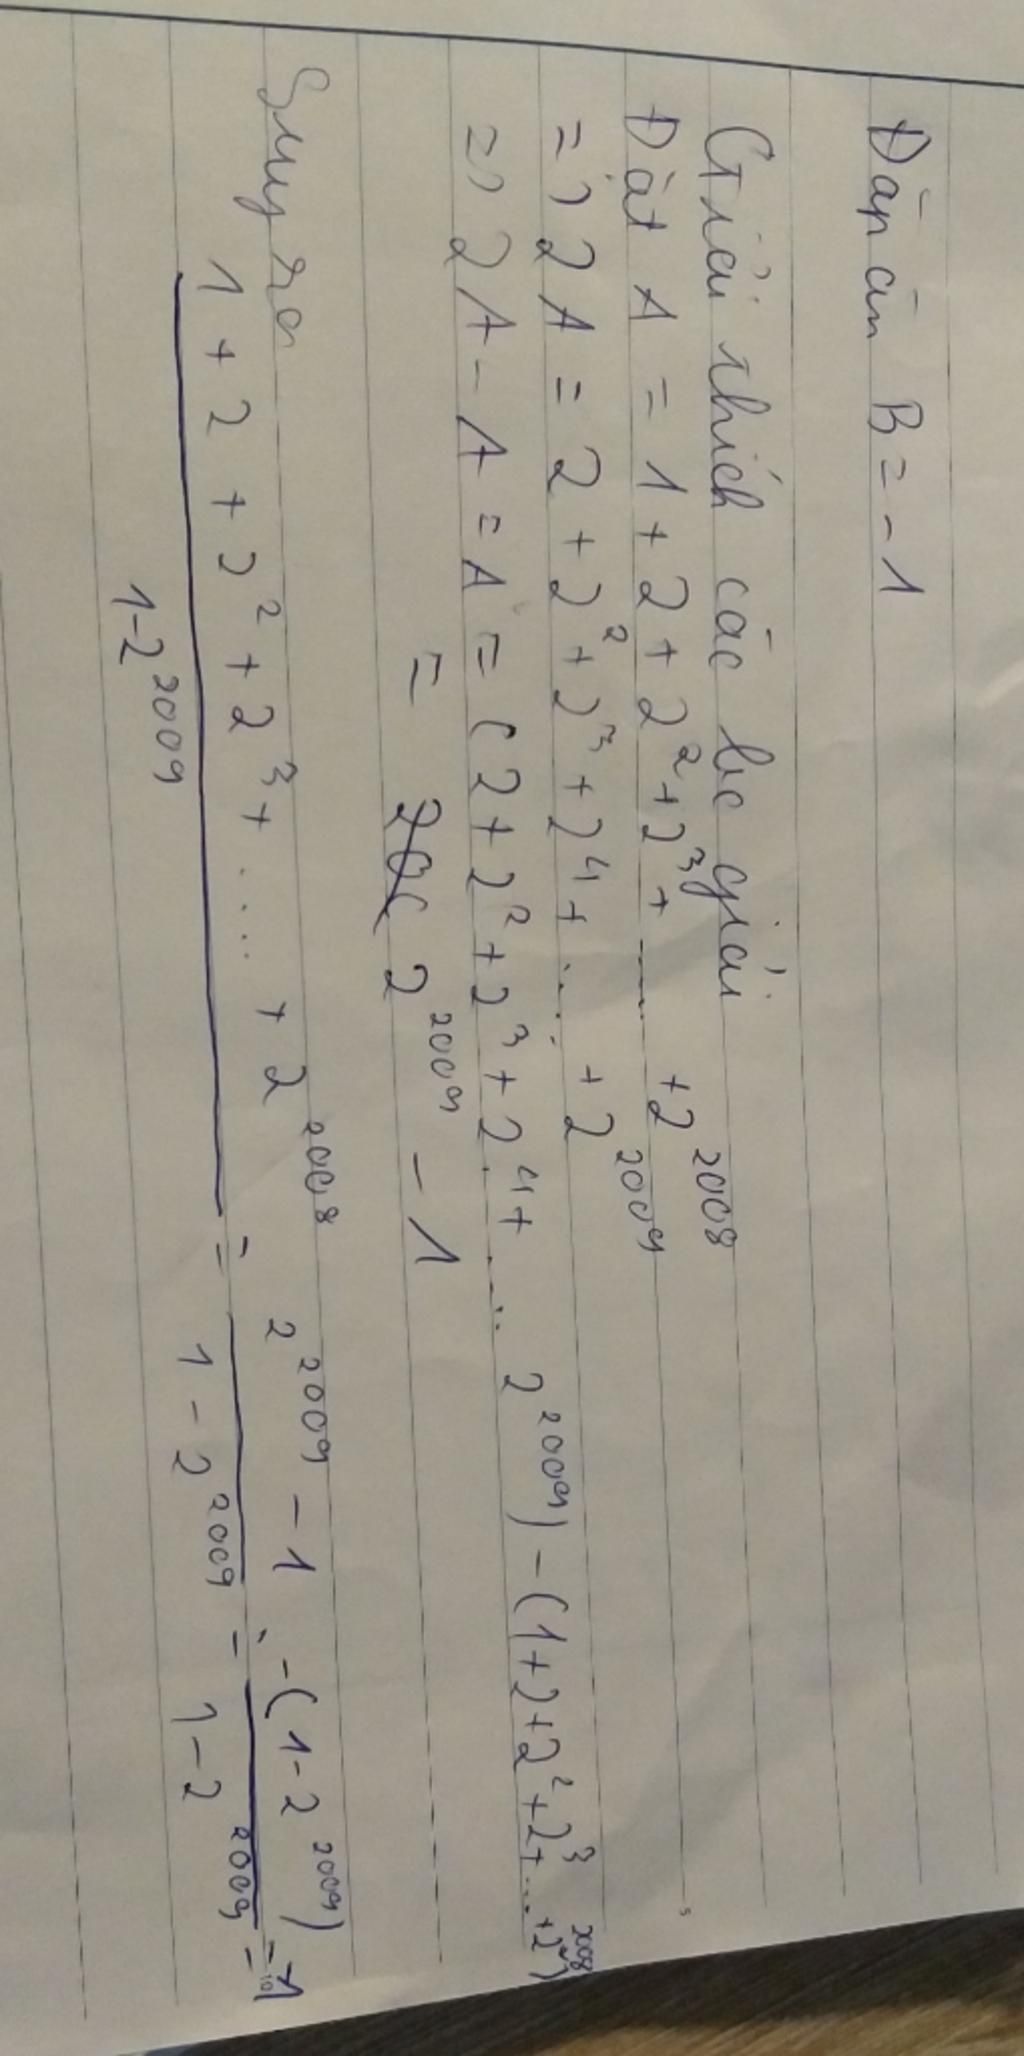 Đáp án B = -1
Giải thích các bc giải
Đặt A = 1 + 2 + 2² + 2³ + ..... + 2²⁰⁰⁸
=) 2A = 2 + 2² + 2³ + 2⁴ + ..... + 2²⁰⁰⁹
=) 2A - A = A = (2 + 2² + 2³ + 2⁴ + ..... 2²⁰⁰⁹) - (1 + 2 + 2² + 2³ + .... + 2²⁰⁰⁸)
= 2²⁰⁰⁹ - 1
Suy ra
1 + 2 + 2² + 2³ + ..... + 2²⁰⁰⁸ / 1 - 2²⁰⁰⁹ = 2²⁰⁰⁹ - 1 / 1 - 2²⁰⁰⁹ = -(1 - 2²⁰⁰⁹) / 1 - 2²⁰⁰⁹ = -1